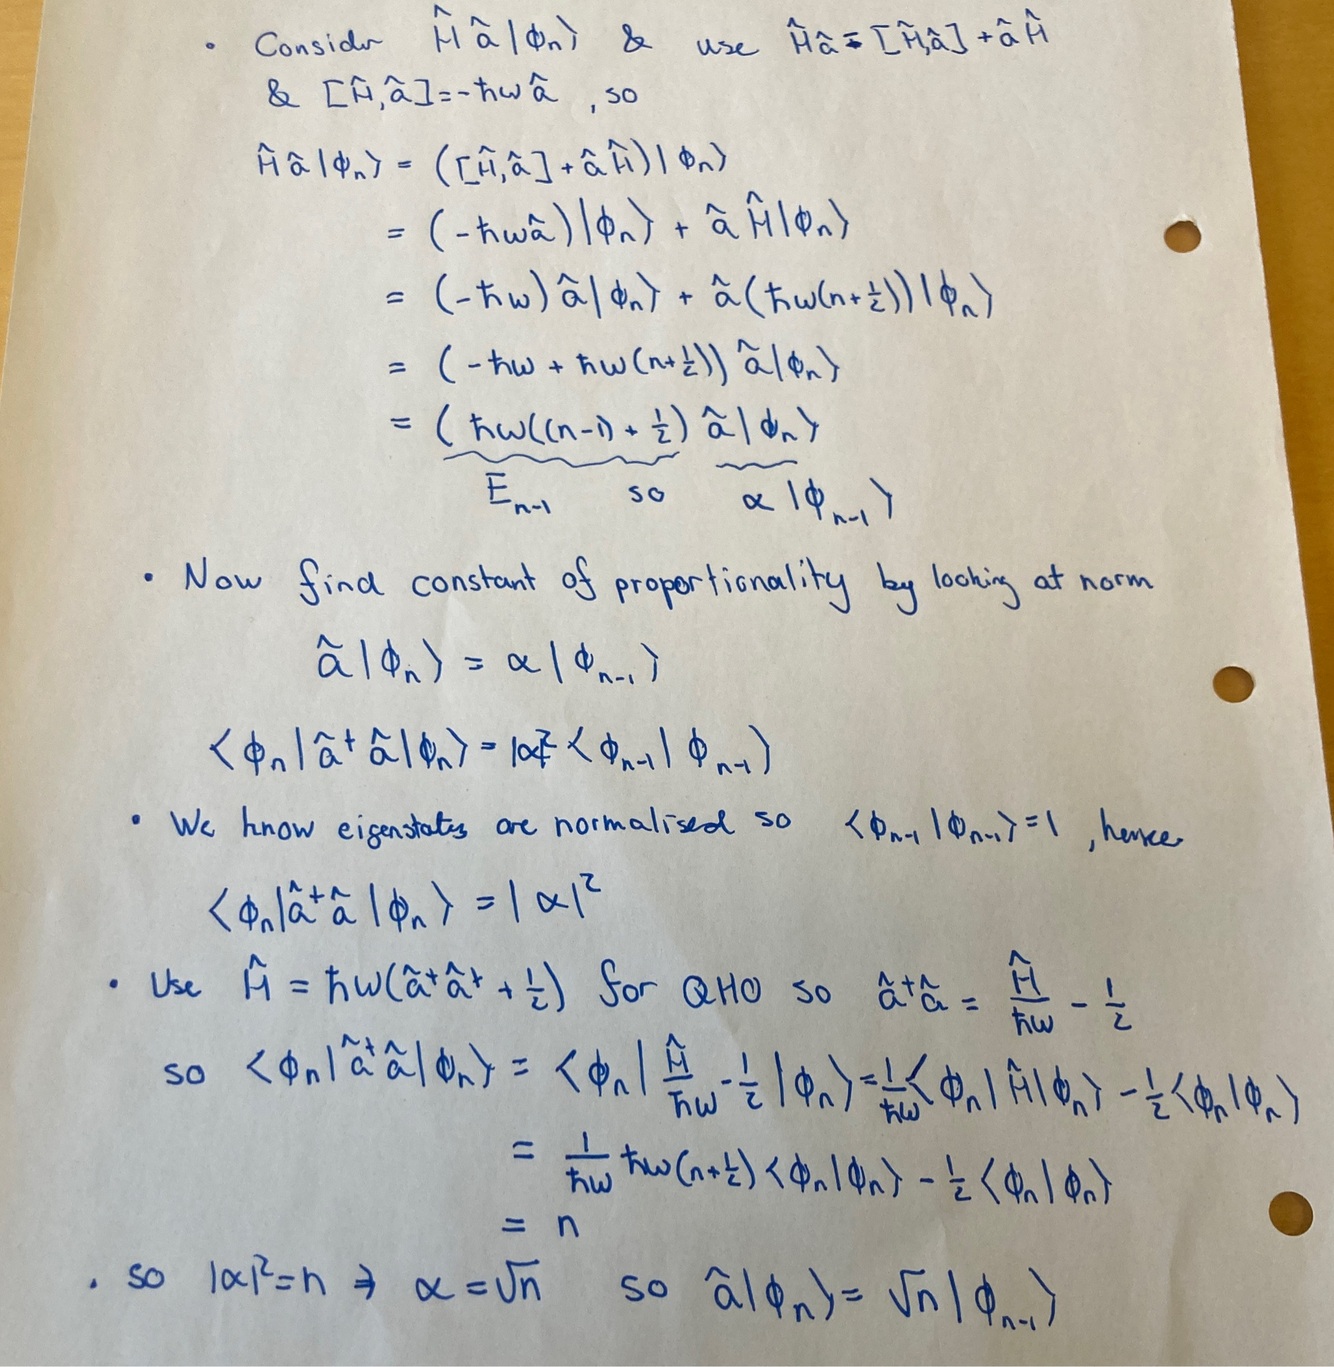 • Consider Ĥ â |ϕₙ⟩ & use Ĥâ = [Ĥ,â] + âĤ
& [Ĥ,â] = -ħω â , so
Ĥ â |ϕₙ⟩ = ([Ĥ,â] + â Ĥ) |ϕₙ⟩
= (-ħωâ) |ϕₙ⟩ + â Ĥ |ϕₙ⟩
= (-ħω) â |ϕₙ⟩ + â (ħω(n+½)) |ϕₙ⟩
= (-ħω + ħω(n+½)) â |ϕₙ⟩
= (ħω((n-1) + ½) â |ϕₙ⟩
Eₙ₋₁ so α |ϕₙ₋₁⟩
• Now find constant of proportionality by looking at norm
â |ϕₙ⟩ = α |ϕₙ₋₁⟩
⟨ϕₙ| â⁺ â |ϕₙ⟩ = |α|² ⟨ϕₙ₋₁ | ϕₙ₋₁⟩
• We know eigenstates are normalised so ⟨ϕₙ₋₁ |ϕₙ₋₁⟩ = 1 , hence
⟨ϕₙ| â⁺ â |ϕₙ⟩ = |α|²
• Use Ĥ = ħω(â⁺ â⁺ + ½) for QHO so â⁺â = Ĥ/ħω - ½
so ⟨ϕₙ| â⁺ â |ϕₙ⟩ = ⟨ϕₙ| Ĥ/ħω - ½ |ϕₙ⟩ = 1/ħω ⟨ϕₙ| Ĥ |ϕₙ⟩ - ½ ⟨ϕₙ|ϕₙ⟩
= 1/ħω ħω(n+½) ⟨ϕₙ|ϕₙ⟩ - ½ ⟨ϕₙ|ϕₙ⟩
= n
• so |α|² = n ⇒ α = √n so â |ϕₙ⟩ = √n |ϕₙ₋₁⟩